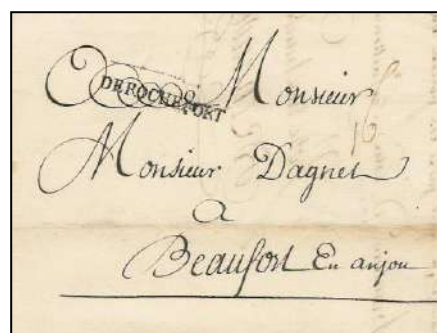 DEROCHEFORT
Monsieur
16
Monsieur Dagnet
a
Beaufort En anjou